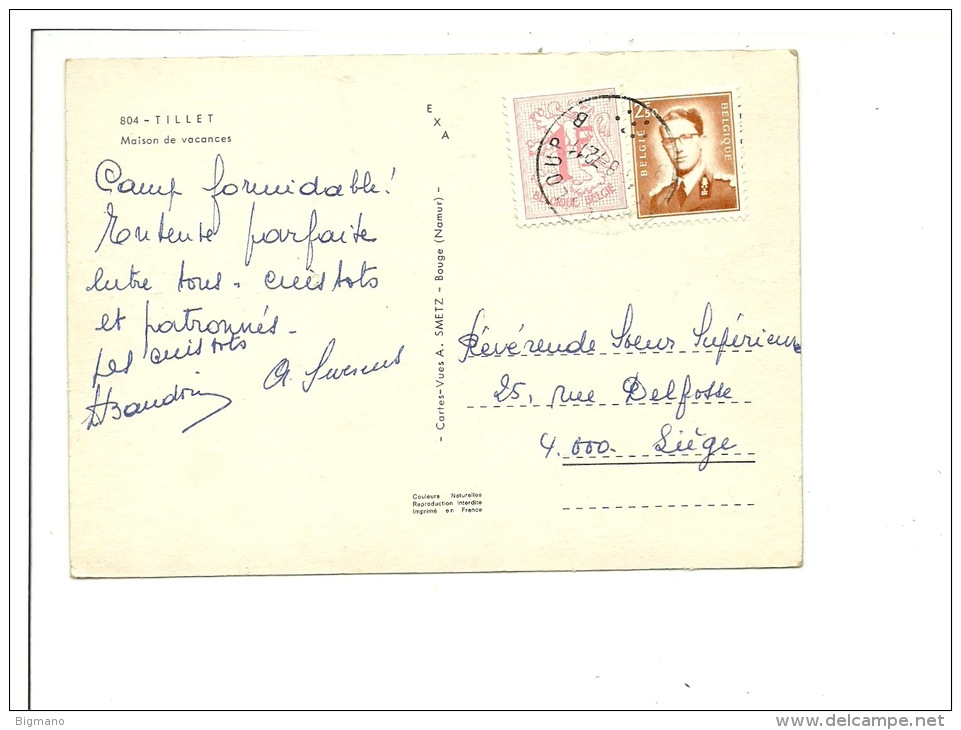 804 - TILLET
Maison de vacances
E
X
A
Camp formidable!
Entente parfaite
entre tous - cuistots
et patronnés -
Les cuistots
- Cartes-Vues A. SMETZ - Bouge (Namur) -
Couleurs Naturelles
Reproduction Interdite
Imprimé en France
1F
BELGIQUE BELGIE
OUP
B
2F5
BELGIE
BELGIQUE
Révérende Soeur Supérieure
25, rue Delfosse
4.000. Liège
Bigmano
delcampe.net